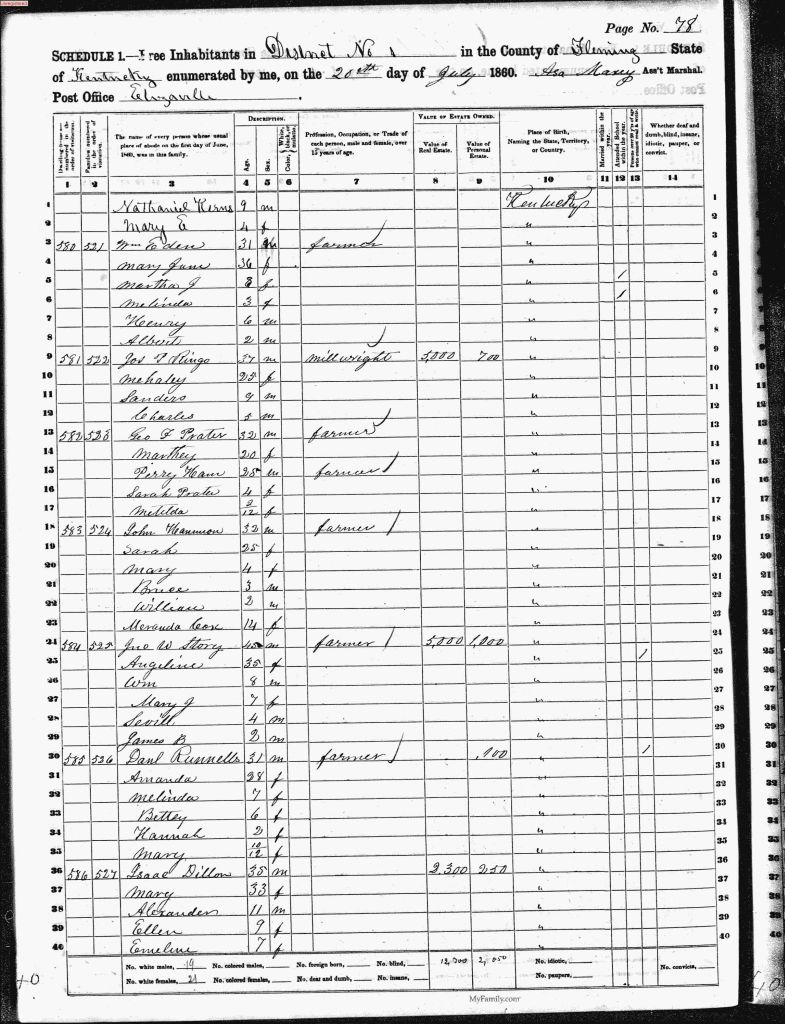 Page No. 78
SCHEDULE 1.—Free Inhabitants in District No 1 in the County of Fleming State
of Kentucky enumerated by me, on the 20th day of July 1860. Asa Maxey Ass't Marshal.
Post Office Elizaville.
DESCRIPTION. VALUE OF ESTATE OWNED.
Dwelling-houses numbered in the order of visitation. Families numbered in the order of visitation. The name of every person whose usual place of abode on the first day of June, 1860, was in this family. Age. Sex. Color, White, black, or mulatto. Profession, Occupation, or Trade of each person, male and female, over 15 years of age. Value of Real Estate. Value of Personal Estate. Place of Birth, Naming the State, Territory, or Country. Married within the year. Attended School within the year. Whether deaf and dumb, blind, insane, idiotic, pauper, or convict.
1 2 3 4 5 6 7 8 9 10 11 12 13 14
1 Nathaniel Kerns 9 m Kentucky 1
2 Mary E 4 f " 2
3 580 521 Wm Eden 31 m farmer " 3
4 Mary Jane 36 f " 4
5 Martha J 8 f " 1 5
6 Melinda 3 f " 1 6
7 Henry 6 m " 7
8 Albert 2 m " 8
9 581 522 Jos P Ringo 37 m millwright 5,000 700 " 9
10 Mehaley 25 f " 10
11 Sanders 9 m " 11
12 Charles 5 m " 12
13 582 523 Geo F Prater 32 m farmer " 13
14 Marthey 20 f " 14
15 Perry Ham 25 m farmer " 15
16 Sarah Prater 4 f " 16
17 Metilda 2/12 f " 17
18 583 524 John Hammon 32 m farmer " 18
19 Sarah 25 f " 19
20 Mary 4 f " 20
21 Bruce 3 m " 21
22 William 2 m " 22
23 Meranda Cox 14 f " 23
24 584 525 Jno W Story 45 m farmer 5,000 1,000 " 24
25 Angeline 35 f " 1 25
26 Wm 8 m " 26
27 Mary J 7 f " 27
28 Sevill 4 m " 28
29 James B 2 m " 29
30 585 526 Danl Runnells 31 m farmer 100 " 1 30
31 Amanda 28 f " 31
32 Melinda 7 f " 32
33 Bettey 6 f " 33
34 Hannah 2 f " 34
35 Mary 10/12 f " 35
36 586 527 Isaac Dillon 35 m 2.300 250 " 36
37 Mary 33 f " 37
38 Alexander 11 m " 38
39 Ellen 9 f " 39
40 Emeline 7 f " 40
No. white males, 19 No. colored males, No. foreign born, No. blind, 12,300 2,050 No. idiotic, No. convicts,
No. white females, 21 No. colored females, No. deaf and dumb, No. insane, No. paupers,
MyFamily.com